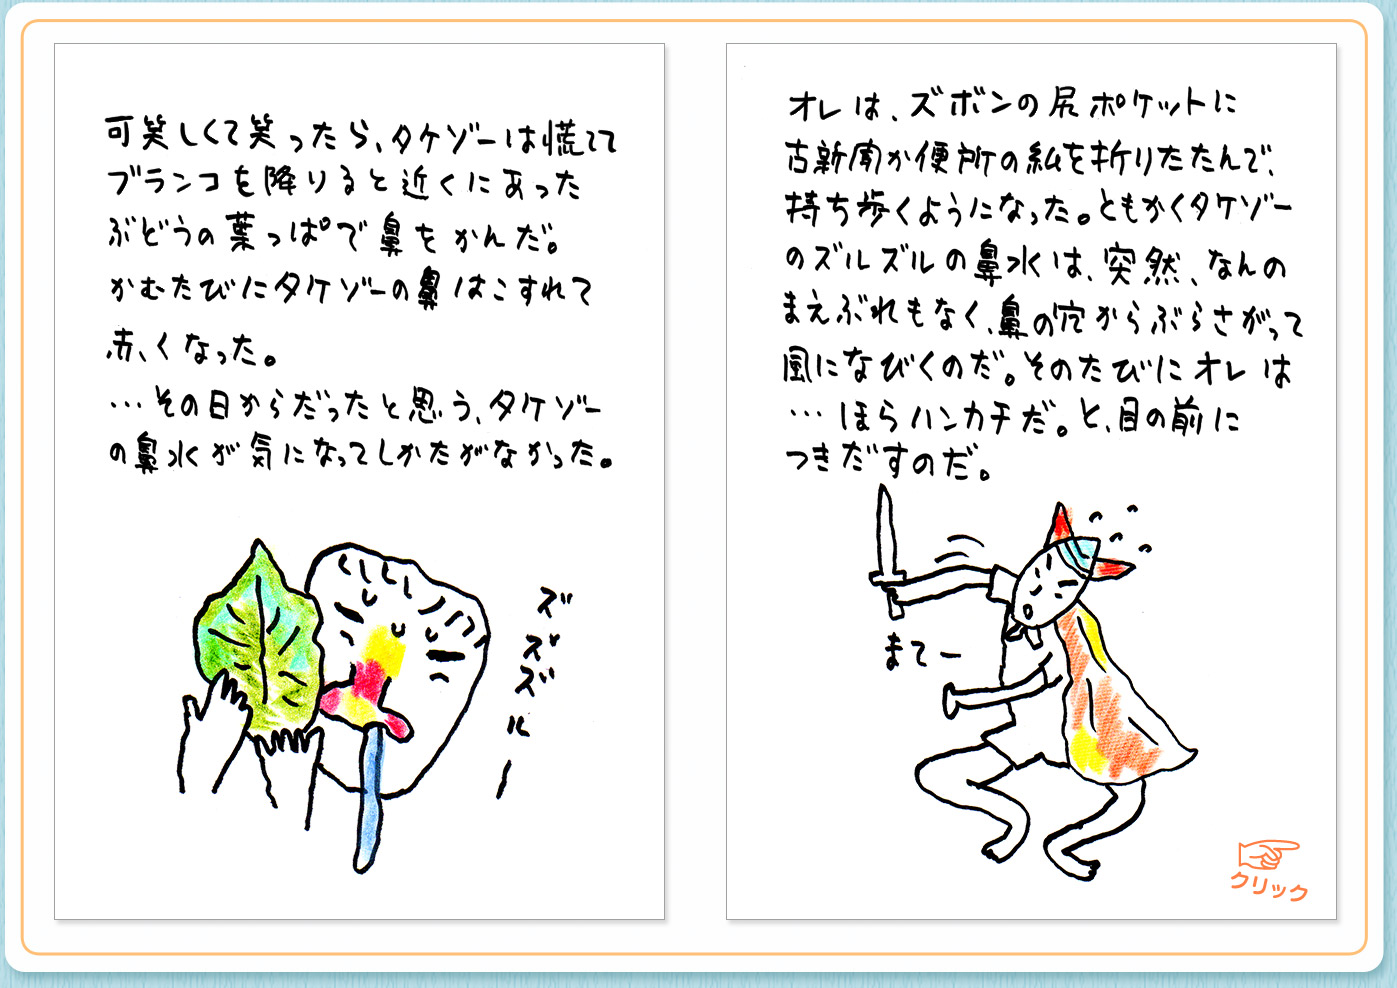 可笑しくて笑ったら、タケゾーは慌てて
ブランコを降りると近くにあった
ぶどうの葉っぱで鼻をかんだ。
かむたびにタケゾーの鼻はこすれて
赤くなった。
…その日からだったと思う、タケゾー
の鼻水が気になってしかたがなかった。
ズズズルー
オレは、ズボンの尻ポケットに
古新聞か便所の紙を折りたたんで、
持ち歩くようになった。ともかくタケゾー
のズルズルの鼻水は、突然、なんの
まえぶれもなく、鼻の穴からぶらさがって
風になびくのだ。そのたびにオレは
…ほらハンカチだ。と、目の前に
つきだすのだ。
まてー
クリック